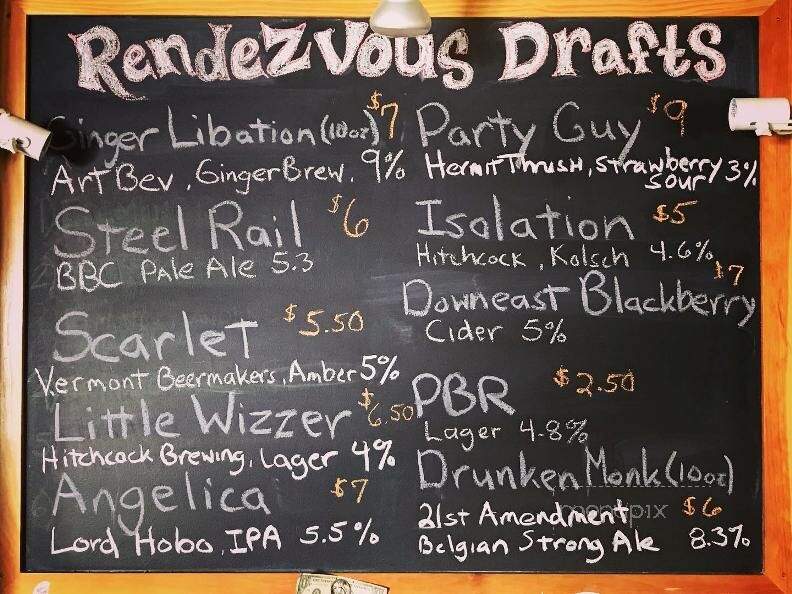 Rendezvous Drafts
Ginger Libation (10oz) $7
ArtBev, GingerBrew. 9%
Steel Rail $6
BBC Pale Ale 5.3
Scarlet $5.50
Vermont Beermakers, Amber 5%
Little Wizzer $6.50
Hitchcock Brewing, Lager 4%
Angelica $7
Lord Hobo, IPA 5.5%
Party Guy $9
Hermit Thrush, Strawberry
Sour 3%
Isolation $5
Hitchcock, Kolsch 4.6%
Downeast Blackberry $7
Cider 5%
PBR $2.50
Lager 4.8%
Drunken Monk (10oz)
21st Amendment $6
Belgian Strong Ale 8.3%